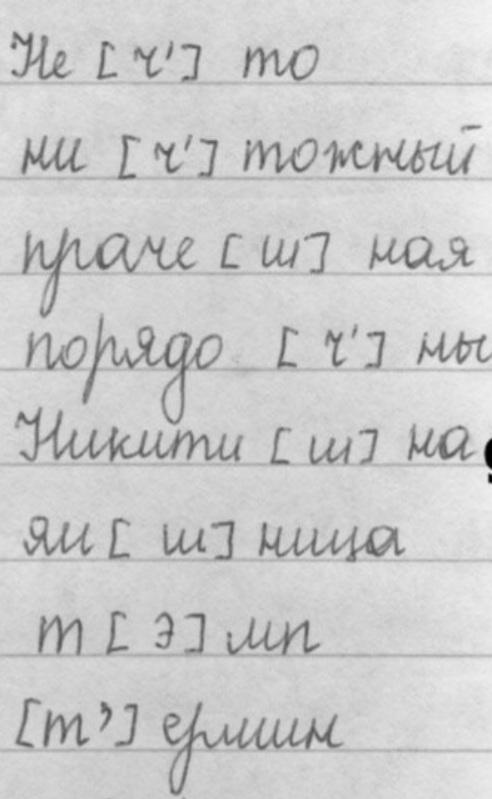 Не [ч'] то
ни [ч'] тожный
праче [ш] ная
порядо [ч'] ны
Никити [ш] на
яи [ш] ница
т [э] мп
[т'] ермин